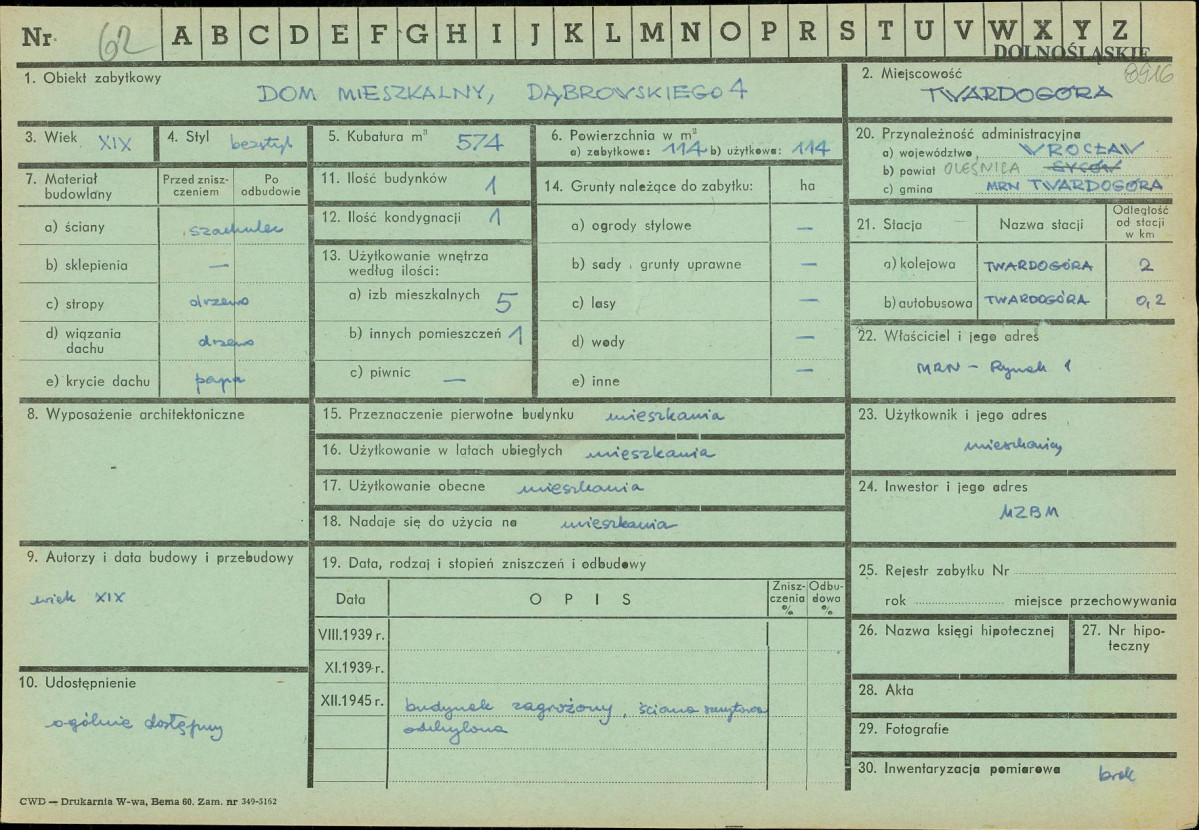 Nr 62 A B C D E F G H I J K L M N O P R S T U V W X Y Z
DOLNOŚLĄSKIE
8916
1. Obiekt zabytkowy
DOM MIESZKALNY, DĄBROWSKIEGO 4
2. Miejscowość
TWARDOGÓRA
3. Wiek XIX
4. Styl bezstyl
5. Kubatura m³ 574
6. Powierzchnia w m²
a) zabytkowa: 114 b) użytkowa: 114
20. Przynależność administracyjna
a) województwo WROCŁAW
b) powiat OLEŚNICA SYCÓW
c) gmina MRN TWARDOGÓRA
7. Materiał budowlany
Przed zniszczeniem
Po odbudowie
a) ściany szachulec
b) sklepienia —
c) stropy drzewo
d) wiązania dachu drzewo
e) krycie dachu papa
11. Ilość budynków 1
12. Ilość kondygnacji 1
13. Użytkowanie wnętrza
według ilości:
a) izb mieszkalnych 5
b) innych pomieszczeń 1
c) piwnic —
14. Grunty należące do zabytku: ha
a) ogrody stylowe —
b) sady, grunty uprawne —
c) lasy —
d) wody —
e) inne —
21. Stacja
Nazwa stacji
Odległość od stacji w km
a) kolejowa TWARDOGÓRA 2
b) autobusowa TWARDOGÓRA 0,2
22. Właściciel i jego adres
MRN – Rynek 1
8. Wyposażenie architektoniczne
-
15. Przeznaczenie pierwotne budynku mieszkania
16. Użytkowanie w latach ubiegłych mieszkania
17. Użytkowanie obecne mieszkania
18. Nadaje się do użycia na mieszkania
23. Użytkownik i jego adres
mieszkańcy
24. Inwestor i jego adres
MZBM
9. Autorzy i data budowy i przebudowy
wiek XIX
10. Udostępnienie
ogólnie dostępny
19. Data, rodzaj i stopień zniszczeń i odbudowy
Data
O P I S
Zniszczenia %
Odbudowa %
VIII.1939 r.
XI.1939 r.
XII.1945 r. budynek zagrożony, ściana szczytowa
odchylona
25. Rejestr zabytku Nr
rok miejsce przechowywania
26. Nazwa księgi hipotecznej
27. Nr hipoteczny
28. Akta
29. Fotografie
30. Inwentaryzacja pomiarowa brak
CWD — Drukarnia W-wa, Bema 60. Zam. nr 349-5162